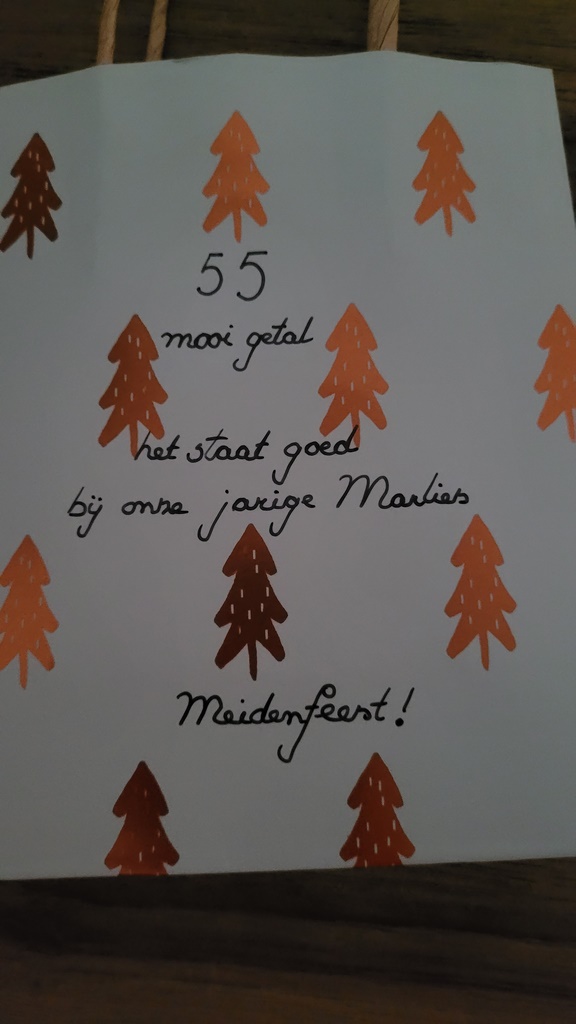 55
mooi getal
het staat goed
bij onze jarige Marlies
Meidenfeest!